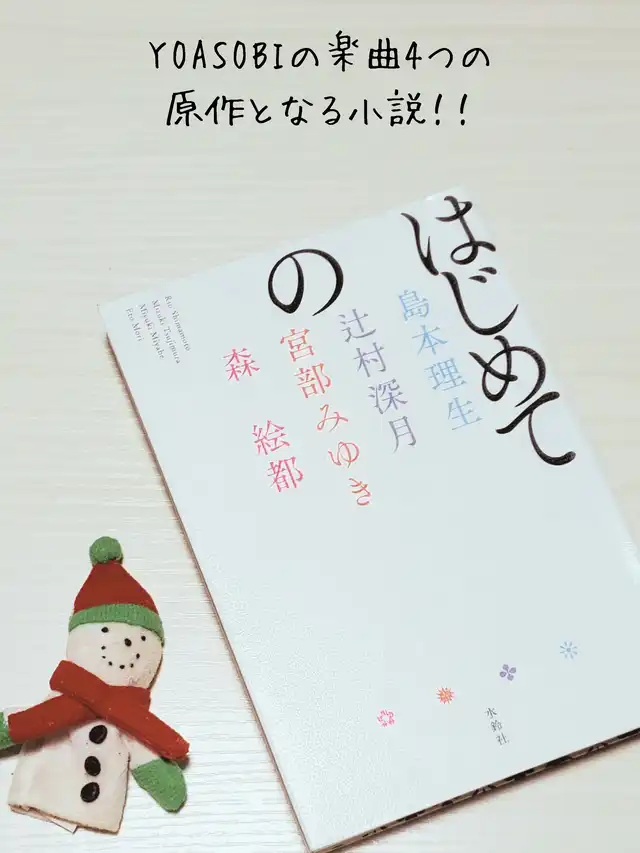 YOASOBIの楽曲4つの
原作となる小説!!
はじめて
の
島本理生
辻村深月
宮部みゆき
森 絵都
Rio Shimamoto
Mizuki Tsujimura
Miyuki Miyabe
Eto Mori
水鈴社